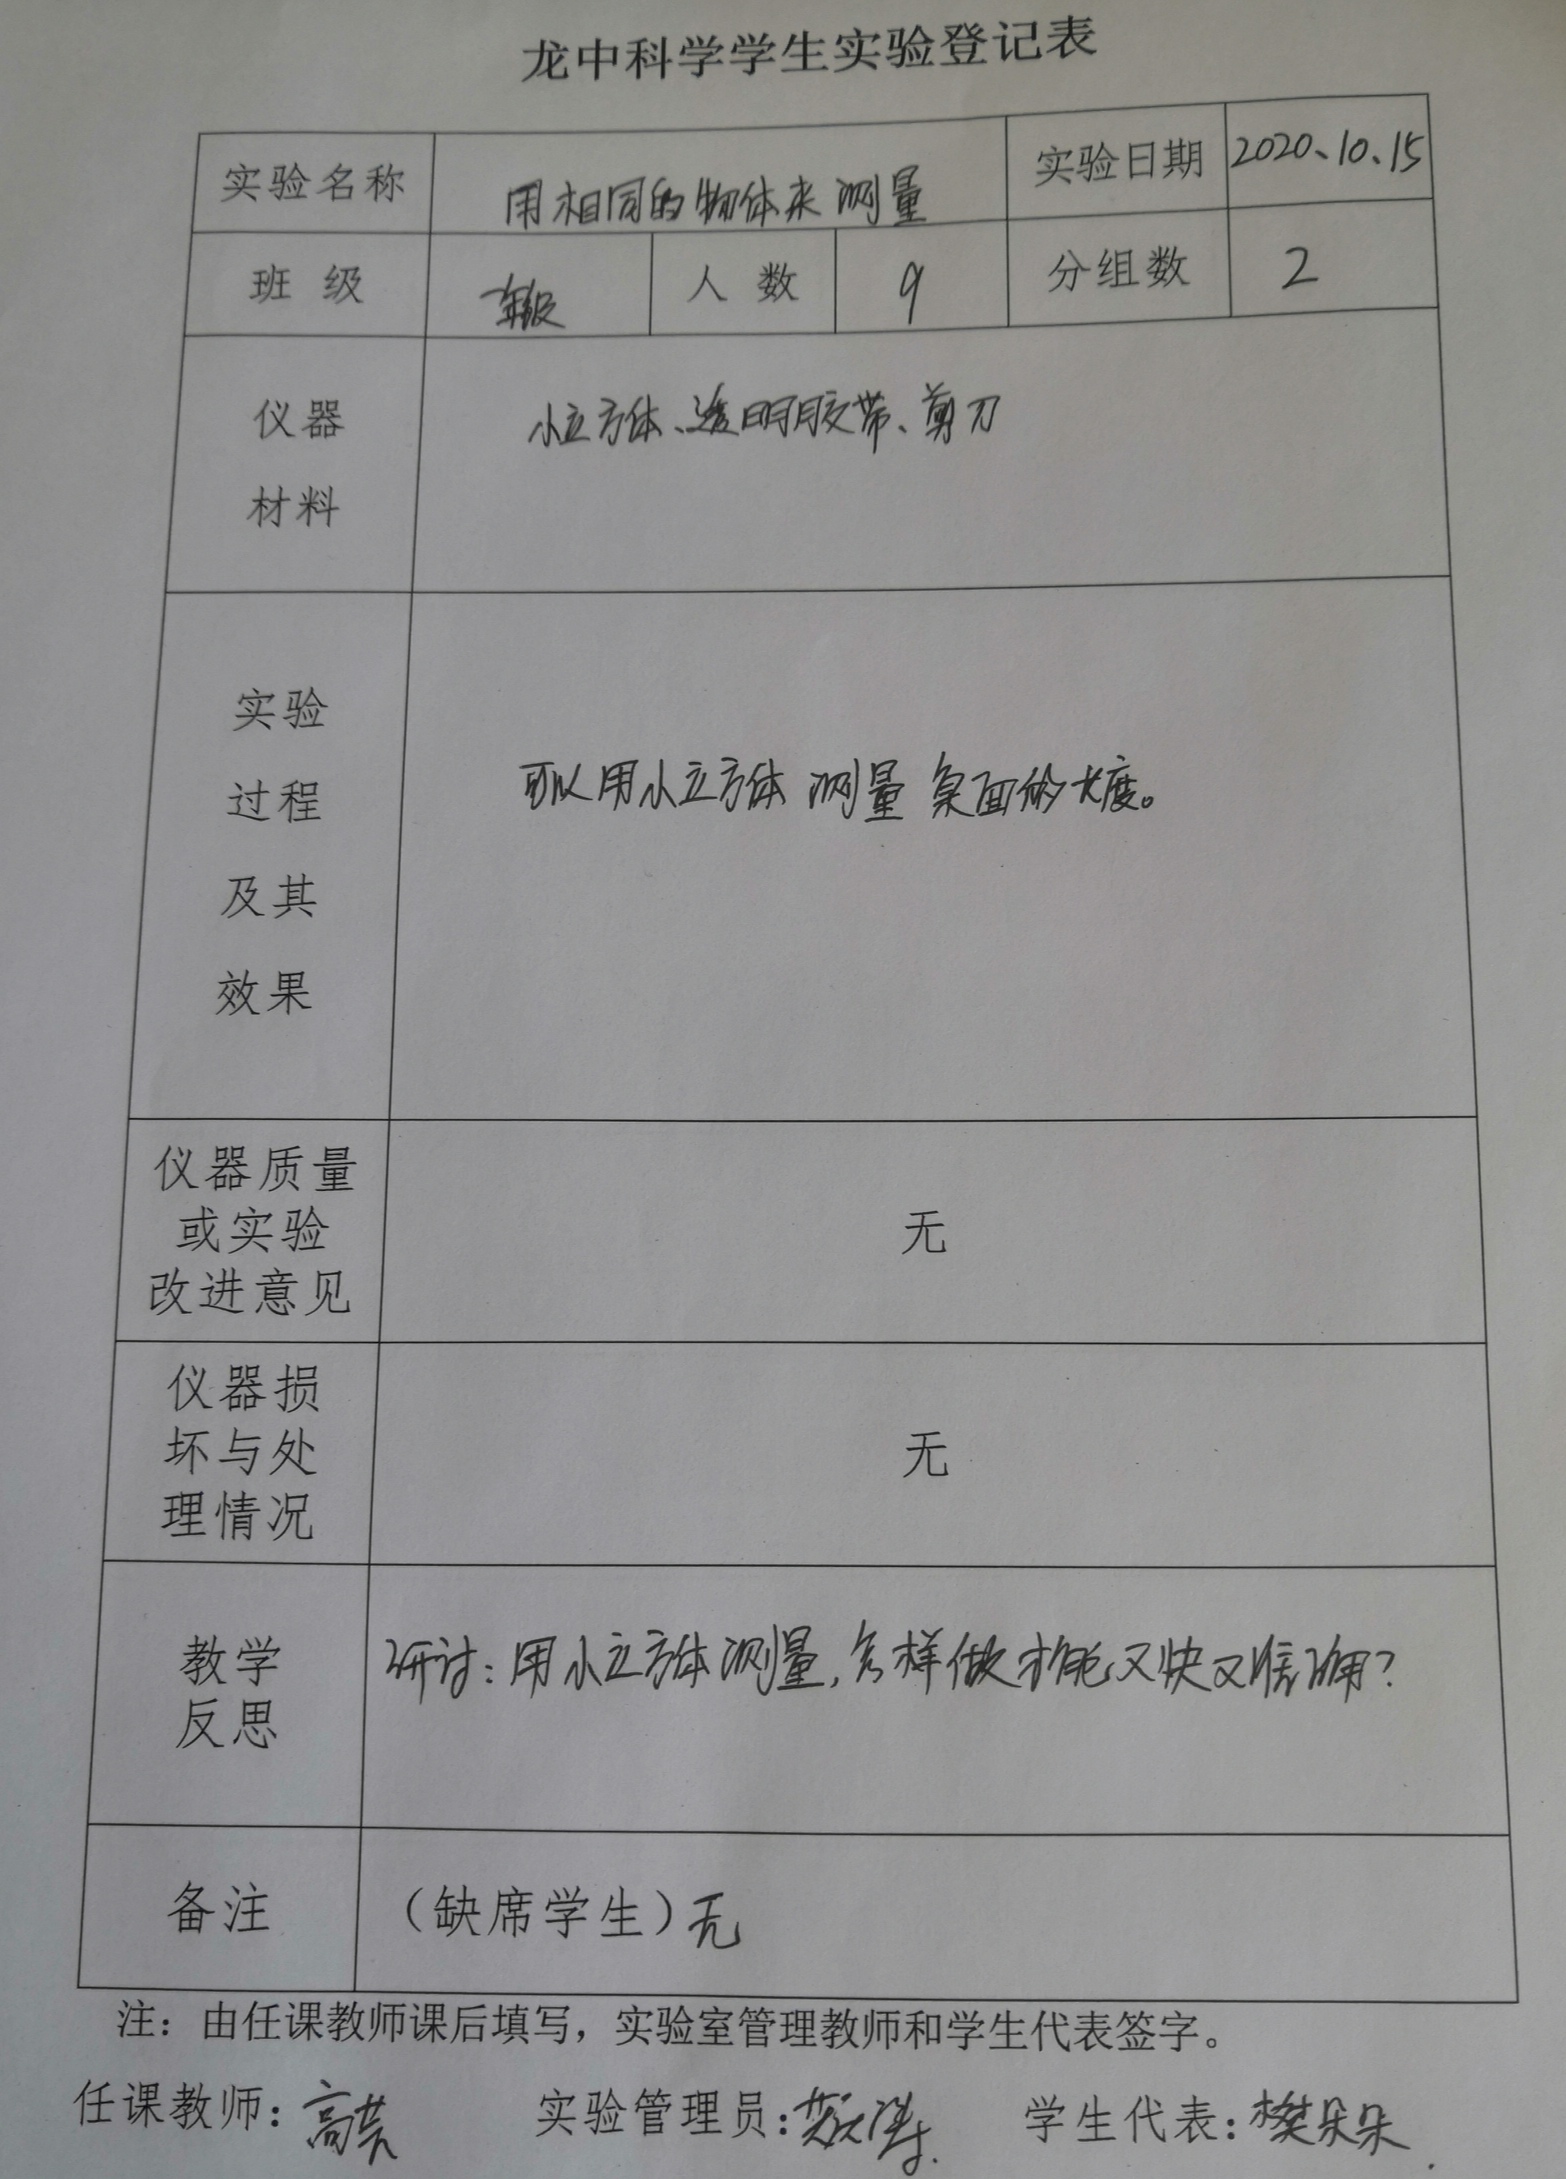 龙中科学学生实验登记表
实验名称 用相同的物体来测量 实验日期 2020、10、15
班 级 一年级 人 数 9 分组数 2
仪器
材料
小立方体、透明胶带、剪刀
实验
过程
及其
效果
可以用小立方体测量桌面的长度。
仪器质量
或实验
改进意见
无
仪器损
坏与处
理情况
无
教学
反思
研讨：用小立方体测量，怎样做才能又快又准确？
备注 （缺席学生）无
注：由任课教师课后填写，实验室管理教师和学生代表签字。
任课教师：高芸 实验管理员： 学生代表：樊朵朵